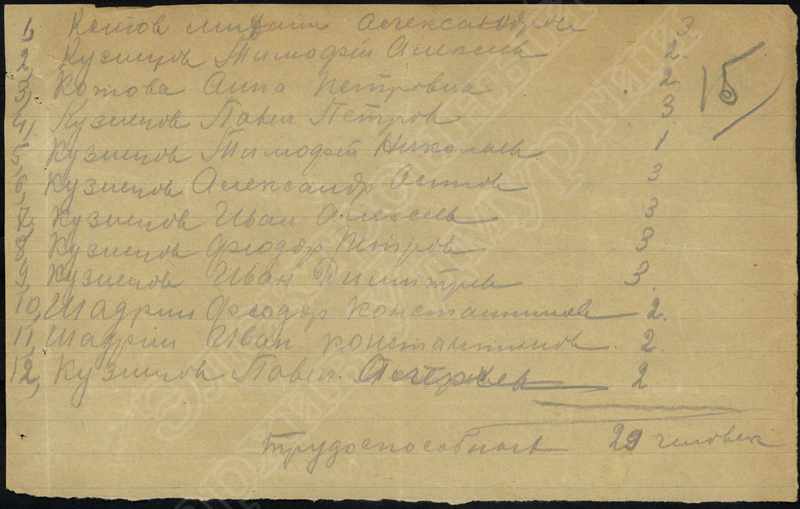 1, Котов Александров 3.
2, Кузнецов Тимофей Алексеев 2.
3, Котова Анна Петровна 2
4, Кузнецов Павел Петров 3
15
5, Кузнецов Тимофей Николаев 1
6, Кузнецов Александр 3
7, Кузнецов Иван Алексеев 3
8, Кузнецов Феодор Петров 3
9, Кузнецов Иван Димитрев 3.
10, Шадрин Феодор Константинов 2.
11, Шадрин Иван Константинов. 2.
12, Кузнецов Павел 2
трудоспособных 29 человек